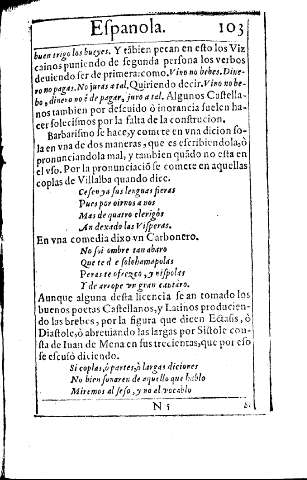 Española. 103
buen trigo los bueyes. Y tãbien pecan en esto los Viz
cainos puniendo de segunda persona los verbos
deuiendo ser de primera: como. Vino no bebes. Dine-
ro no pagas. No juras a tal. Quiriendo decir. Vino no be-
bo, dinero no é de pagar, juro a tal. Algunos Castella-
nos tambien por descuido ò inorancia suelen ha-
cer solecismos por la falta de la construcion.
Barbarismo se hace, y comete en vna dicion so-
la en vna de dos maneras, que es escribiendola, ò
pronunciandola mal, y tambien quãdo no esta en
el vso. Por la pronunciaciõ se comete en aquellas
coplas de Villalba quando dice.
Cesen ya sus lenguas fieras
Pues por oirnos a nos
Mas de quatro clerigòs
An dexado las Visperas.
En vna comedia dixo vn Carbonero.
No soi ombre tan abaro
Que te d e solo hamapolas
Peras te ofrezco, y nispolas
Y de arrope vn gran cantaro.
Aunque alguna desta licencia se an tomado los
buenos poetas Castellanos, y Latinos producien-
do las brebes, por la figura que dicen Ectasis, ò
Diastole, ò abreuiando las largas por Sistole con-
sta de Iuan de Mena en sus trecientas, que por eso
se escusò diciendo.
Si coplas, ò partes, ò largas diciones
No bien sonaren de aquello que hablo
Miremos al seso, y no al vocablo
N 5